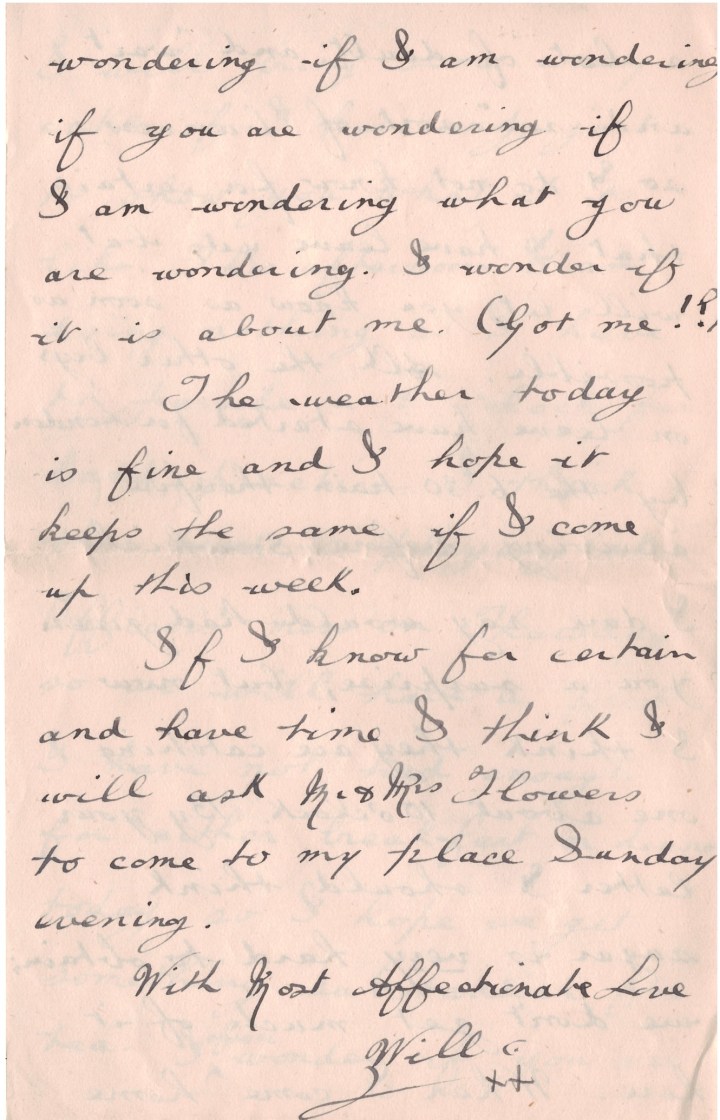 wondering if I am wondering
if you are wondering if
I am wondering what you
are wondering. I wonder if
it is about me. (Got me!?)
The weather today
is fine and I hope it
keeps the same if I come
up this week.
If I know for certain
and have time I think I
will ask Mr & Mrs Flowers
to come to my place Sunday
evening.
With Most Affectionate Love
Will
++